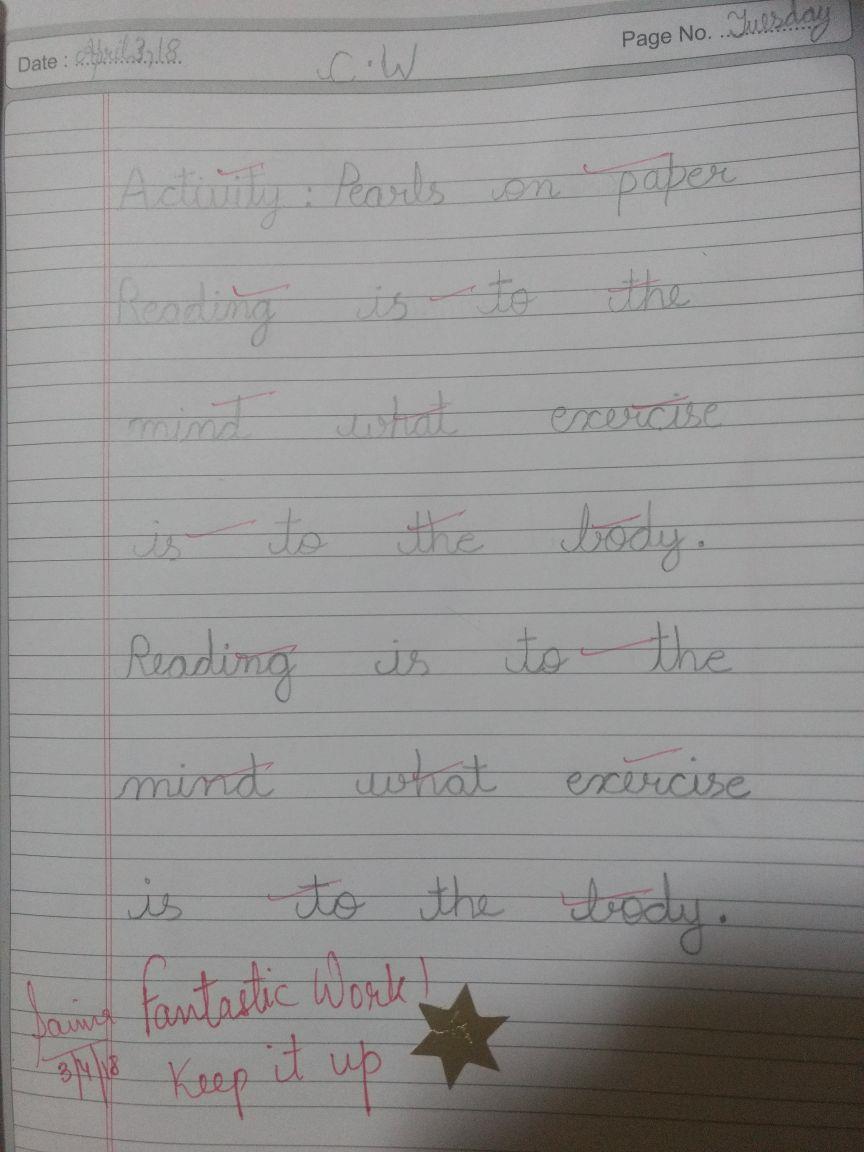 Date : April 3, 18. Page No. Tuesday
C.W
Activity : Pearls on paper
Reading is to the
mind what exercise
is to the body.
Reading is to the
mind what exercise
is to the body.
Fantastic Work!
Keep it up
3/4/18